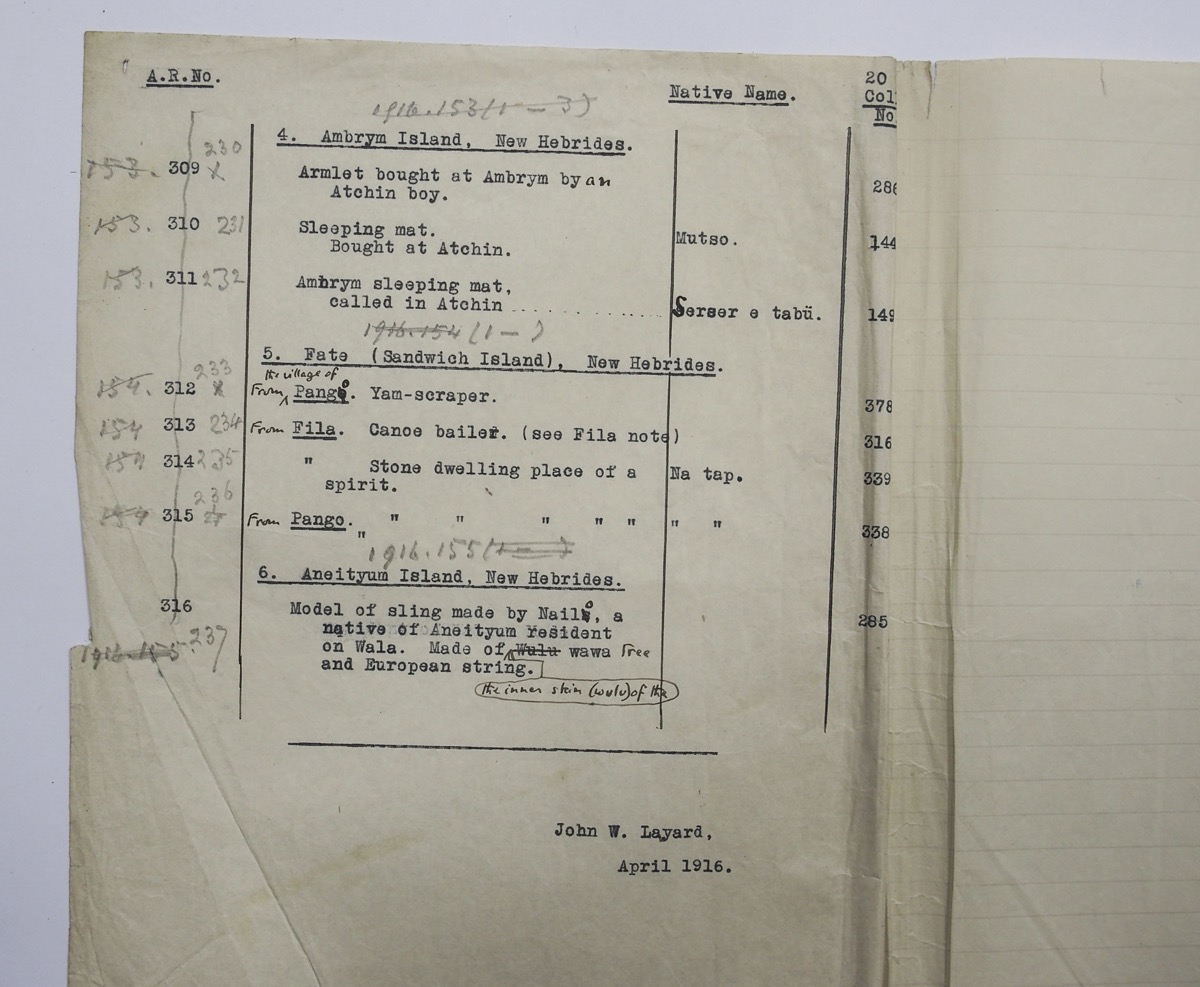 A.R.No.
Native Name.
20
Col
No
1916.153(1 — 3)
4. Ambrym Island, New Hebrides.
230
153. 309 x Armlet bought at Ambrym by an
Atchin boy. 286
153. 310 231 Sleeping mat. Mutso. 144
Bought at Atchin.
153. 311 232 Ambrym sleeping mat,
called in Atchin .............. Serser e tabü. 149
1916.154 (1 — )
5. Fate (Sandwich Island), New Hebrides.
233 the village of
154. 312 x From Pango. Yam-scraper. 378
154 313 234 From Fila. Canoe bailer. (see Fila note) 316
154 314 235 " Stone dwelling place of a Na tap. 339
spirit.
236
154 315 From Pango. " " " " " " " 338
"
1916.155 (1 — )
6. Aneityum Island, New Hebrides.
316 Model of sling made by Nailo, a 285
native of Aneityum resident
1916.155 237 on Wala. Made of Wulu wawa Tree
and European string.
the inner skin (wulu) of the
John W. Layard,
April 1916.